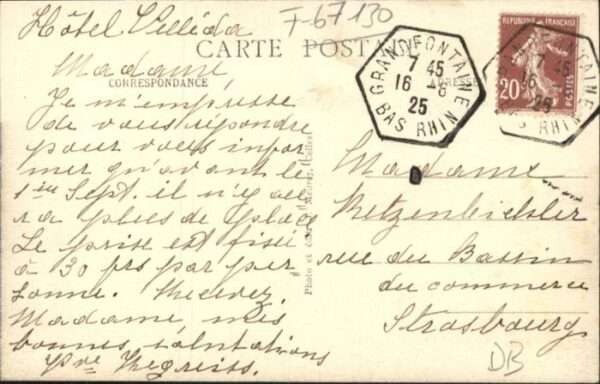 Hôtel Velléda
F-67130
CARTE POSTALE
Madame,
CORRESPONDANCE
ADRESSE
Je m'empresse
de vous répondre
pour vous infor
mer qu'avant le
1er Sept. il n'y au
ra plus de place
Le prise est fixé
à 30 frs par per
sonne. Recevez,
Madame, mes
bonnes salutations
GRANDFONTAINE
7 45
16 -6
25
BAS RHIN
REPUBLIQUE FRANÇAISE
20c
POSTES
7 45
16
25
RHIN
Madame
Metzenbichler
rue du Bassin
du commerce
Strasbourg
DB